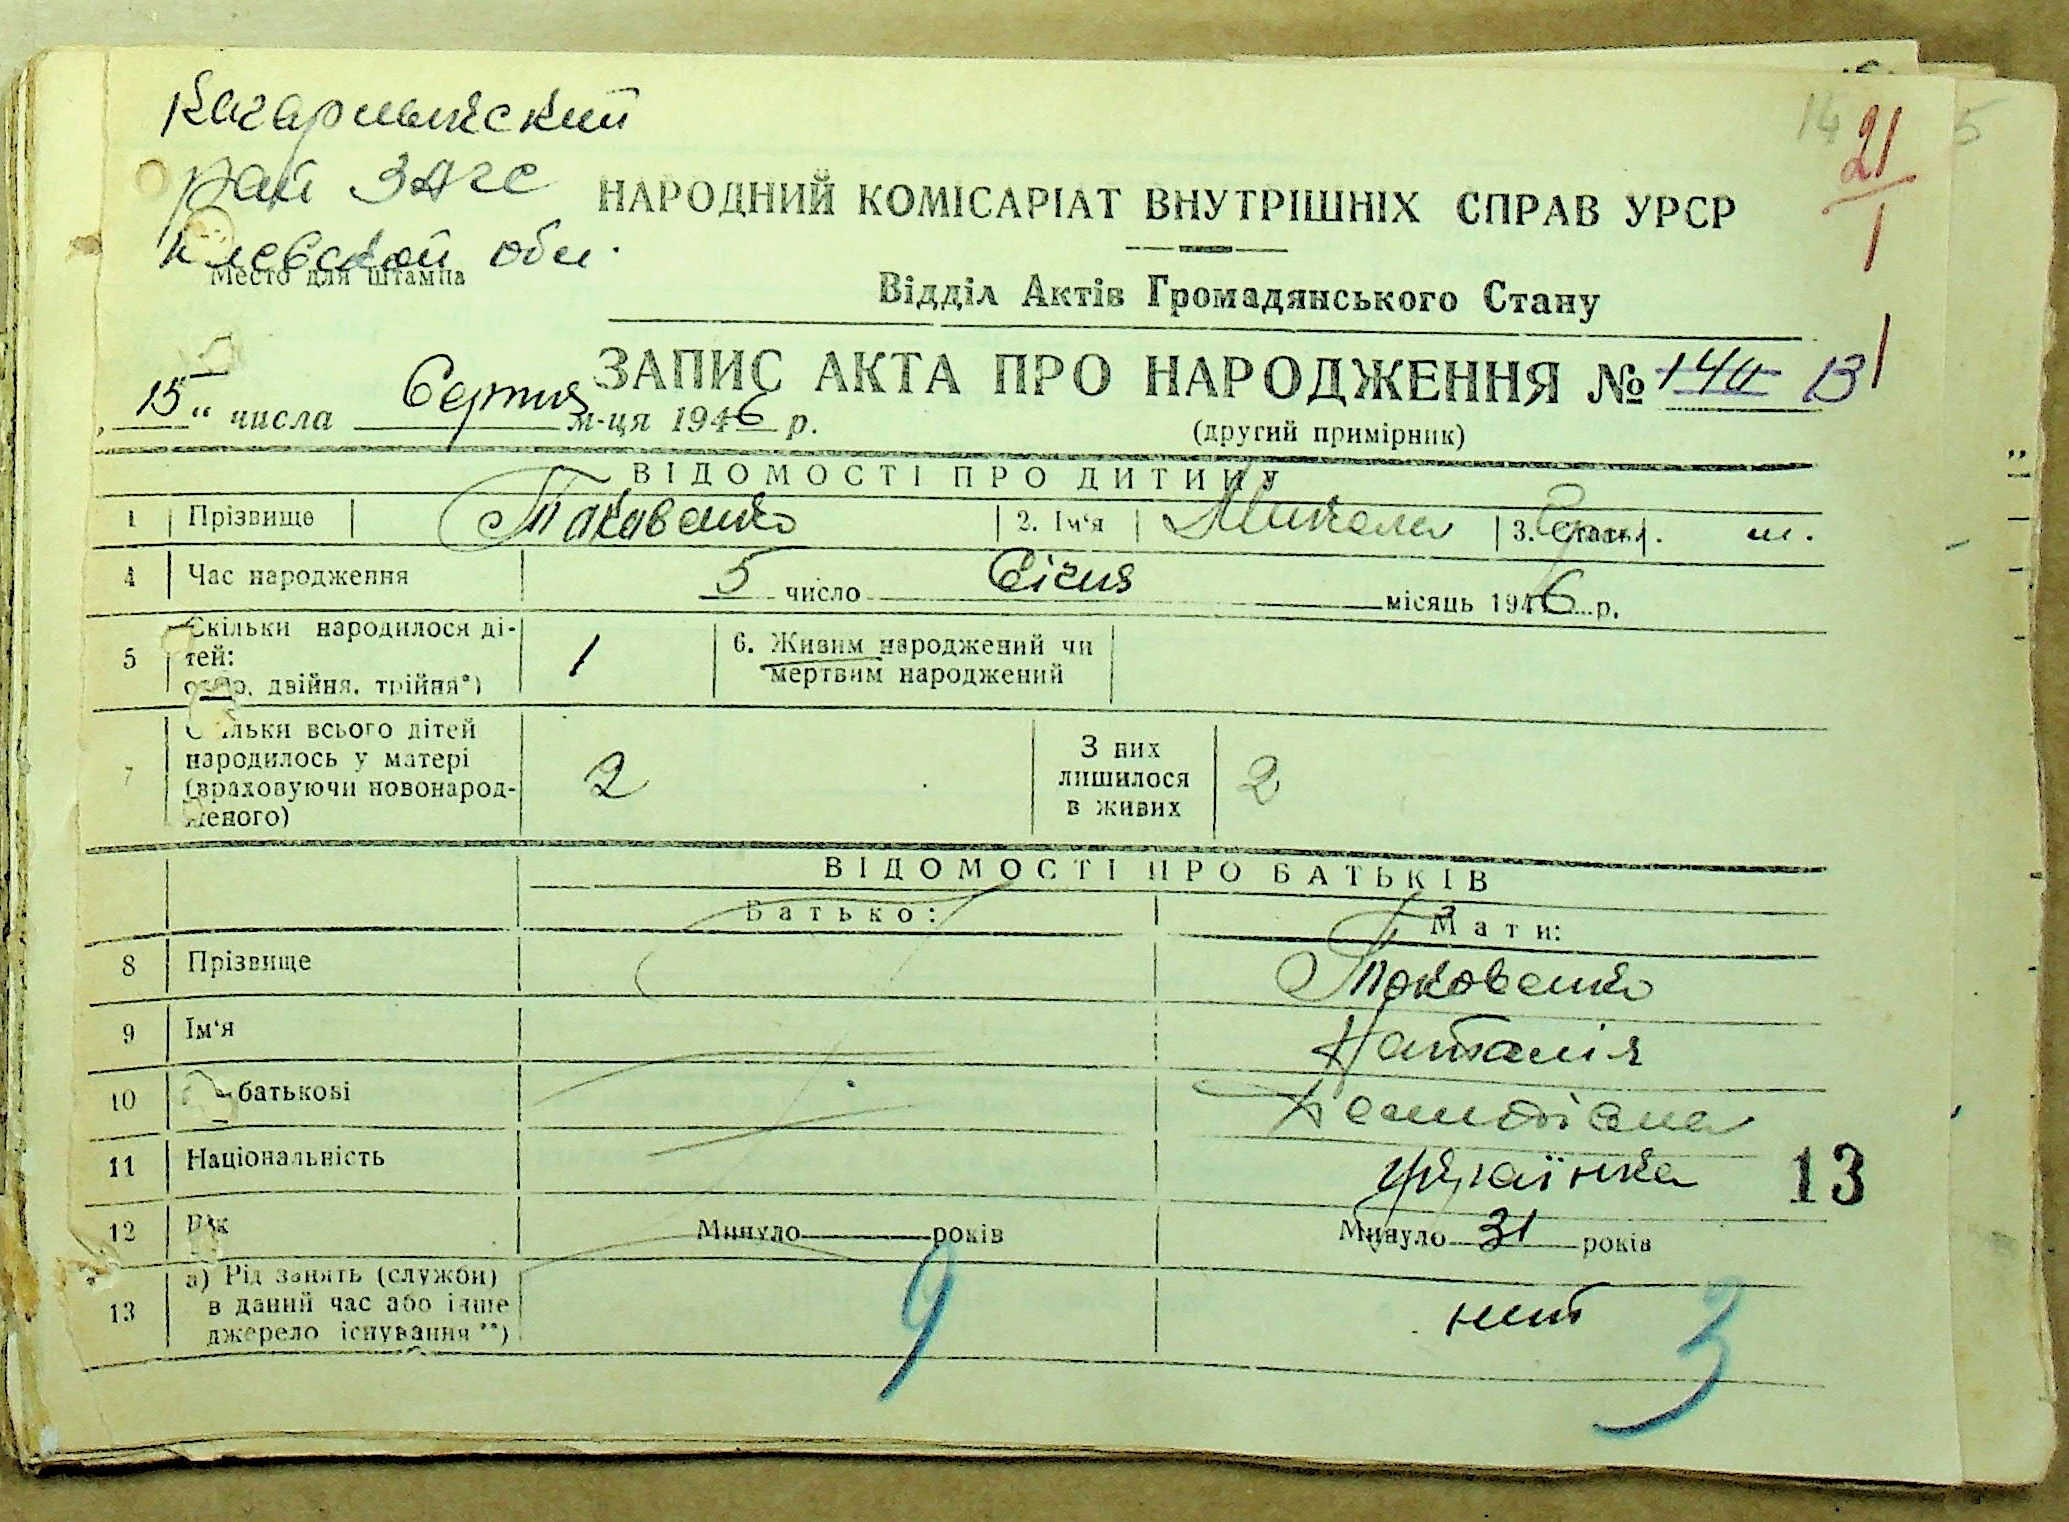 Кагарлыкский
рай ЗАГС
Киевской обл.
Место для штампа
14 21 5
1
НАРОДНИЙ КОМІСАРІАТ ВНУТРІШНІХ СПРАВ УРСР
Відділ Актів Громадянського Стану
ЗАПИС АКТА ПРО НАРОДЖЕННЯ № 13
„15“ числа Серпня м-ця 1946 р.
(другий примірник)
ВІДОМОСТІ ПРО ДИТИНУ
1 Прізвище Токовенко 2. Ім‘я Микола 3. Стать
4 Час народження 5 число Січня місяць 1946 р.
5 Скільки народилося ді-
тей:
одно, двійня, трійня*)
1
6. Живим народжений чи
мертвим народжений
7 Скільки всього дітей
народилось у матері
(враховуючи новонарод-
женого)
2
З них
лишилося
в живих
2
ВІДОМОСТІ ПРО БАТЬКІВ
Батько: Мати:
8 Прізвище Токовенко
9 Ім‘я Наталія
10 батькові
11 Національність українка 13
12 Вік Минуло років Минуло 31 років
13 а) Рід занять (служби)
в даний час або інше
джерело існування**)
9 3